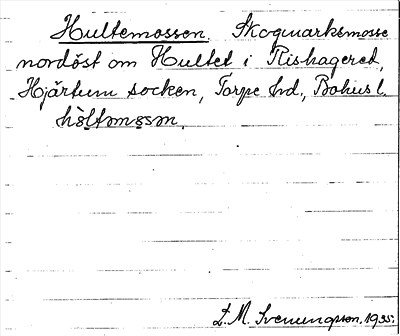 Hultemossen. Skogmarksmosse
nordöst om Hultet i Rishagered,
Hjärtum socken, Torpe hd, Bohusl.
hòltmɔsən.
L. M. Svenungsson. 1935.